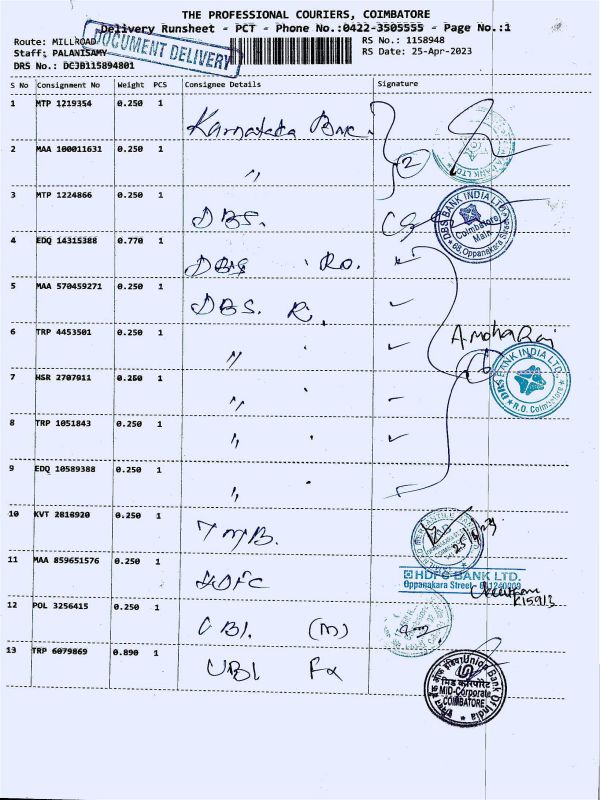 THE PROFESSIONAL COURIERS, COIMBATORE
Delivery Runsheet - PCT - Phone No.:0422-3505555 - Page No.:1
Route: MILLROAD
DOCUMENT DELIVERY
RS No.: 1158948
Staff: PALANISAMY
RS Date: 25-Apr-2023
DRS No.: DCJB115894801
S No Consignment No Weight PCS Consignee Details Signature
1 MTP 1219354 0.250 1 Karnataka Bnk.
2 MAA 100011631 0.250 1 〃 2
3 MTP 1224866 0.250 1 DBS.
DBS BANK INDIA LTD. Coimbatore Main 68, Oppanakara Street
4 EDQ 14315388 0.770 1 DBS RO.
5 MAA 570459271 0.250 1 DBS. R.
6 TRP 4453501 0.250 1 〃
7 HSR 2707911 0.250 1 〃
DBS BANK INDIA LTD. R.O. Coimbatore
8 TRP 1051843 0.250 1 〃
9 EDQ 10589388 0.250 1 〃
10 KVT 2818920 0.250 1 TMB.
11 MAA 859651576 0.250 1 HDFC
HDFC BANK LTD.
Oppanakara Street - 641240009
K15913
12 POL 3256415 0.250 1 UBI. (M)
13 TRP 6079869 0.890 1 UBI Fx
Union Bank Of India
मिड कार्पोरेट
MID-Corporate
COIMBATORE